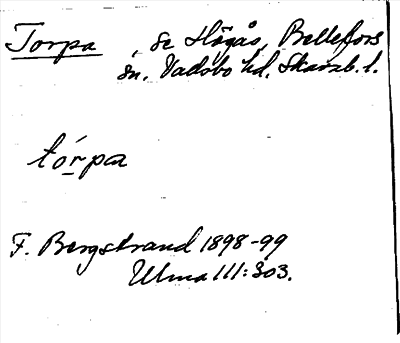 Torpa, se Högås, Bellefors
sn. Vadsbo hd. Skarab. l.
tórpa
F. Bergstrand 1898-99
Ulma 111:303.